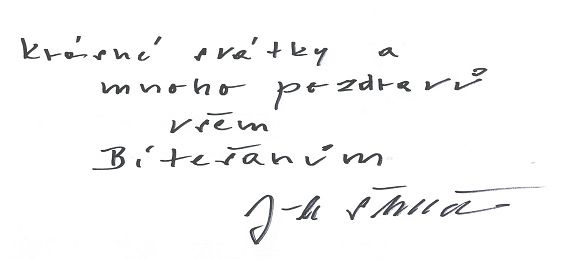 krásné svátky a
mnoho pozdravů
všem
Bítešanům